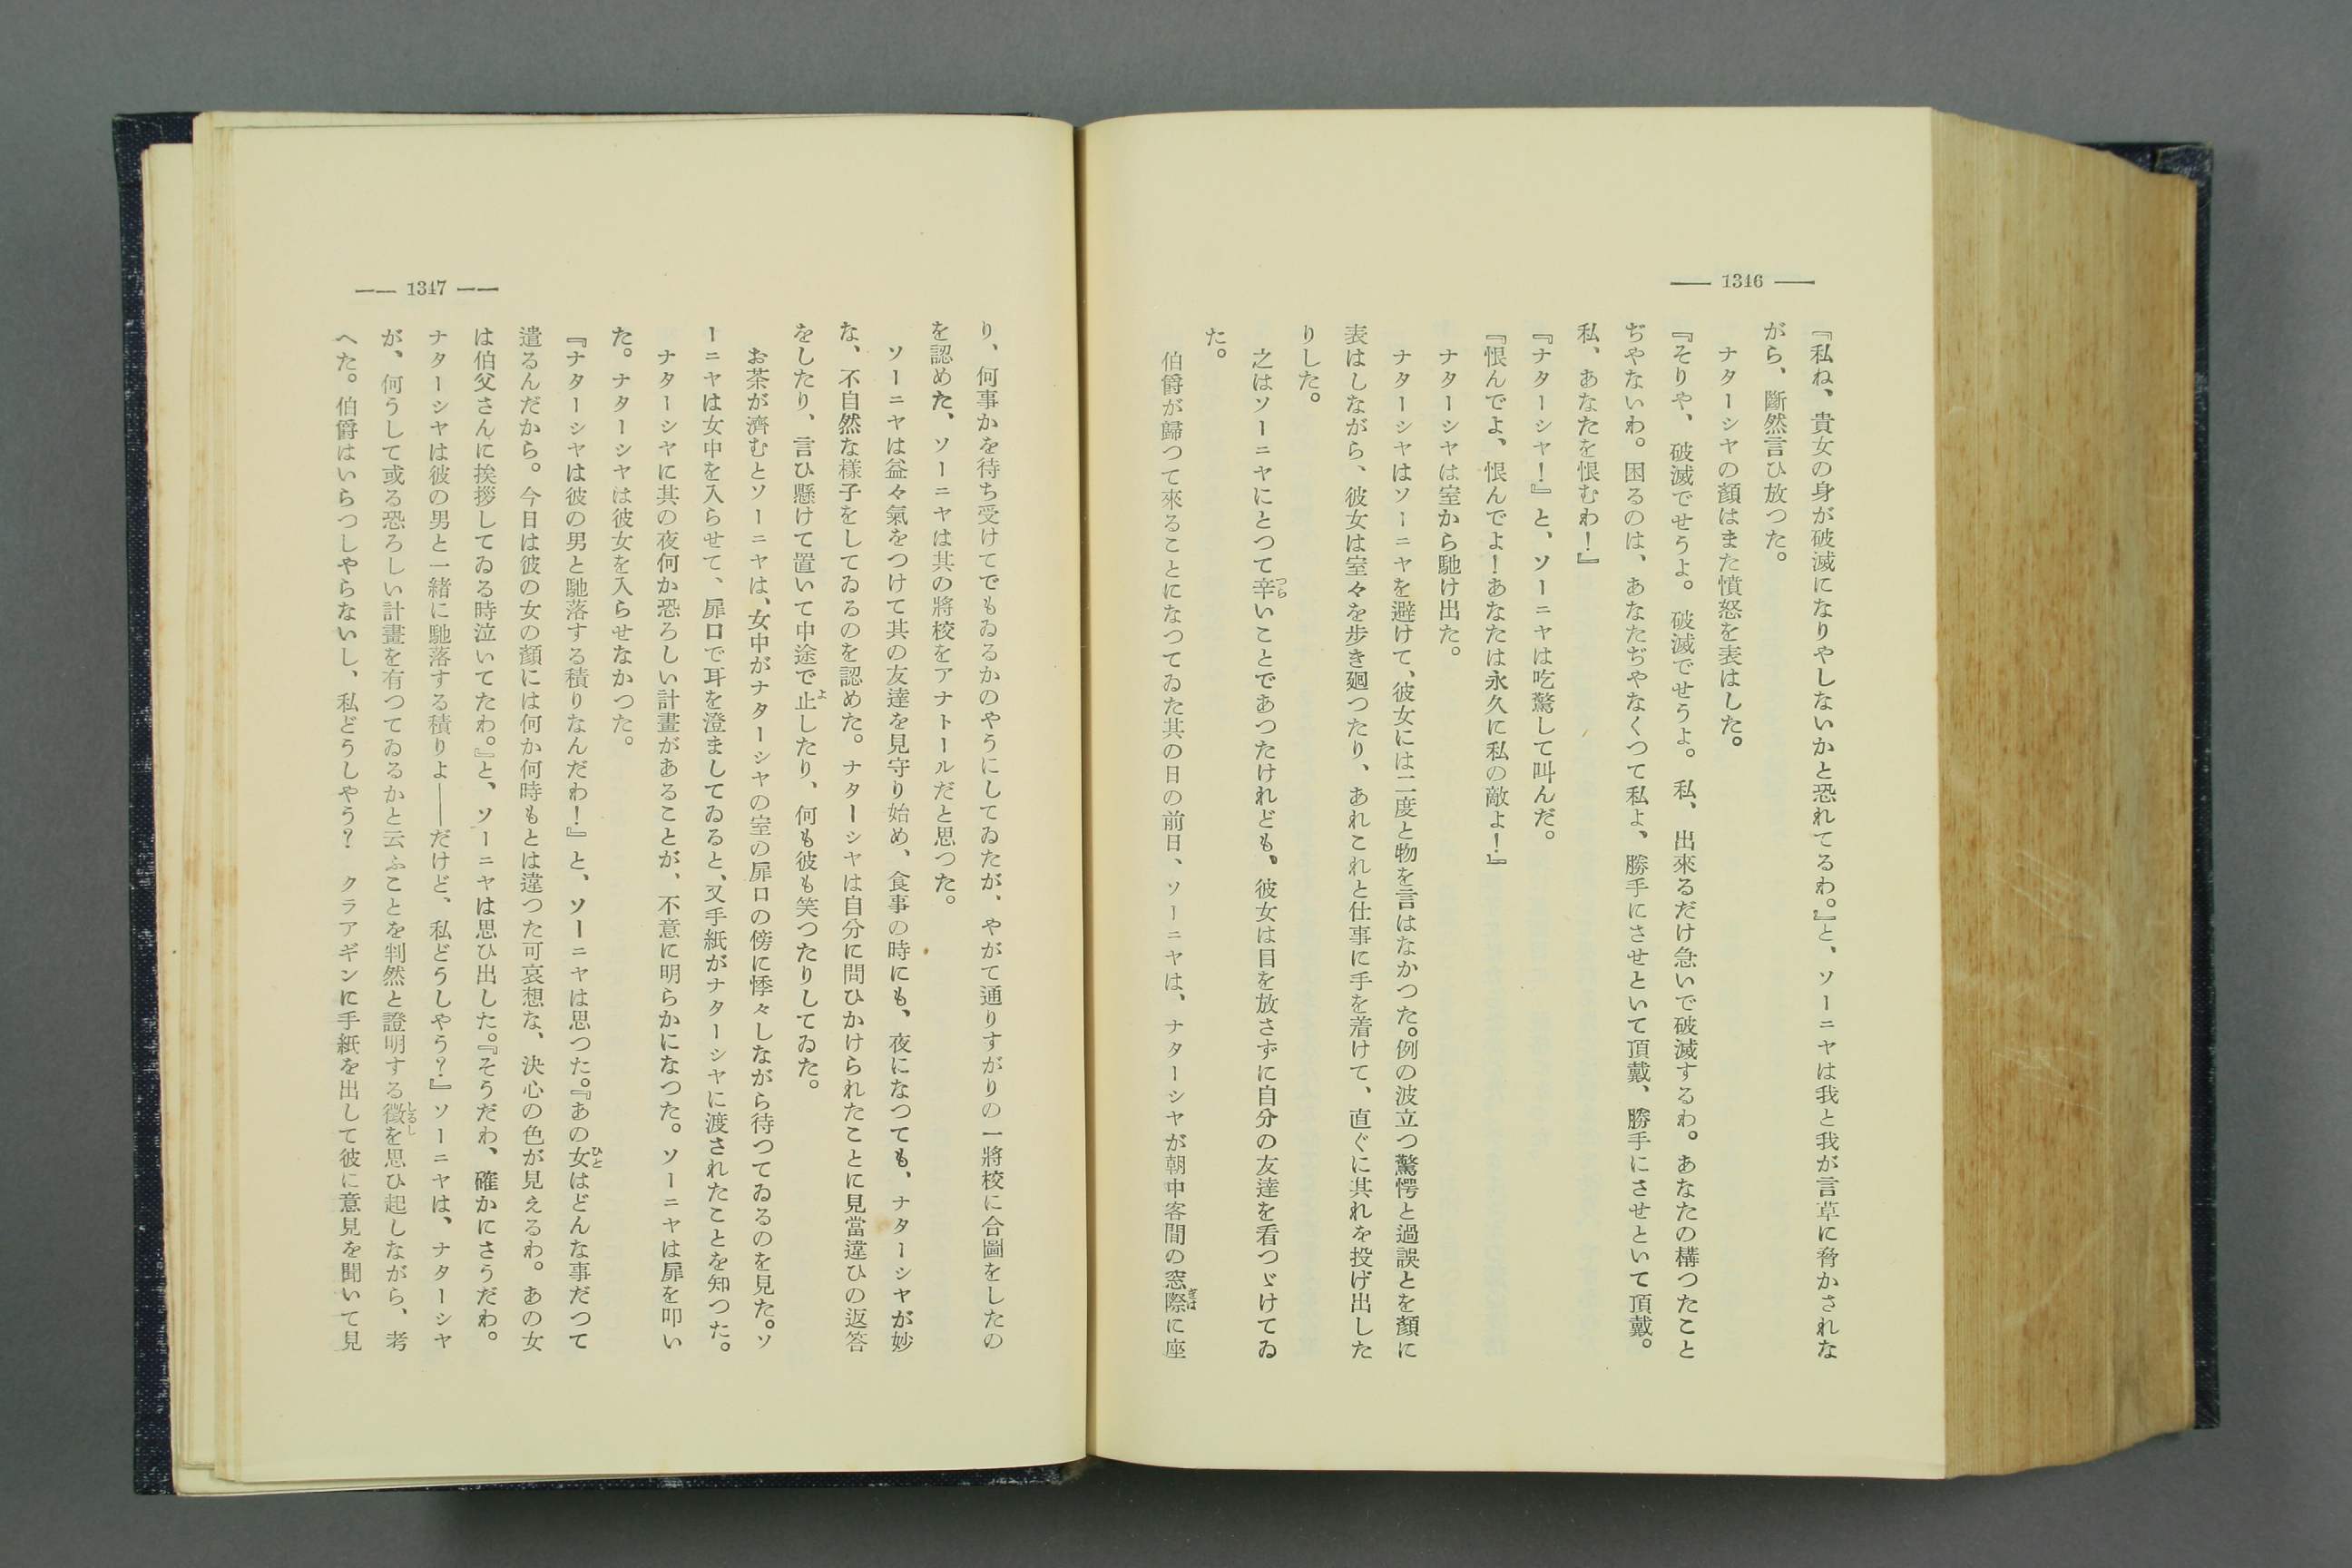 — 1346 —
『私ね、貴女の身が破滅になりやしないかと恐れてるわ。』と、ソーニヤは我と我が言草に脅かされな
がら、斷然言ひ放つた。
ナターシヤの顏はまた憤怒を表はした。
『そりや、破滅でせうよ。破滅でせうよ。私、出來るだけ急いで破滅するわ。あなたの構つたこと
ぢやないわ。困るのは、あなたぢやなくつて私よ、勝手にさせといて頂戴、勝手にさせといて頂戴。
私、あなたを恨むわ！』
『ナターシヤ！』と、ソーニヤは吃驚して叫んだ。
『恨んでよ、恨んでよ！あなたは永久に私の敵よ！』
ナターシヤは室から馳け出た。
ナターシヤはソーニヤを避けて、彼女には二度と物を言はなかつた。例の波立つ驚愕と過誤とを顏に
表はしながら、彼女は室々を歩き廻つたり、あれこれと仕事に手を着けて、直ぐに其れを投げ出した
りした。
之はソーニヤにとつて辛いことであつたけれども、彼女は目を放さずに自分の友達を看つゞけてゐ
た。
伯爵が歸つて來ることになつてゐた其の日の前日、ソーニヤは、ナターシヤが朝中客間の窓際に座
— 1347 —
り、何事かを待ち受けてでもゐるかのやうにしてゐたが、やがて通りすがりの一將校に合圖をしたの
を認めた、ソーニヤは其の將校をアナトールだと思つた。
ソーニヤは益々氣をつけて其の友達を見守り始め、食事の時にも、夜になつても、ナターシヤが妙
な、不自然な樣子をしてゐるのを認めた。ナターシヤは自分に問ひかけられたことに見當違ひの返答
をしたり、言ひ懸けて置いて中途で止したり、何も彼も笑つたりしてゐた。
お茶が濟むとソーニヤは、女中がナターシヤの室の扉口の傍に悸々しながら待つてゐるのを見た。ソ
ーニヤは女中を入らせて、扉口で耳を澄ましてゐると、又手紙がナターシヤに渡されたことを知つた。
ナターシヤに其の夜何か恐ろしい計畫があることが、不意に明らかになつた。ソーニヤは扉を叩い
た。ナターシヤは彼女を入らせなかつた。
『ナターシヤは彼の男と馳落する積りなんだわ！』と、ソーニヤは思つた。『あの女はどんな事だつて
遣るんだから。今日は彼の女の顏には何か何時もとは違つた可哀想な、決心の色が見えるわ。あの女
は伯父さんに挨拶してゐる時泣いてたわ。』と、ソーニヤは思ひ出した。『そうだわ、確かにさうだわ。
ナターシヤは彼の男と一緒に馳落する積りよ――だけど、私どうしやう？』ソーニヤは、ナターシヤ
が、何うして或る恐ろしい計畫を有つてゐるかと云ふことを判然と證明する徴を思ひ起しながら、考
へた。伯爵はいらつしやらないし、私どうしやう？　クラアギンに手紙を出して彼に意見を聞いて見